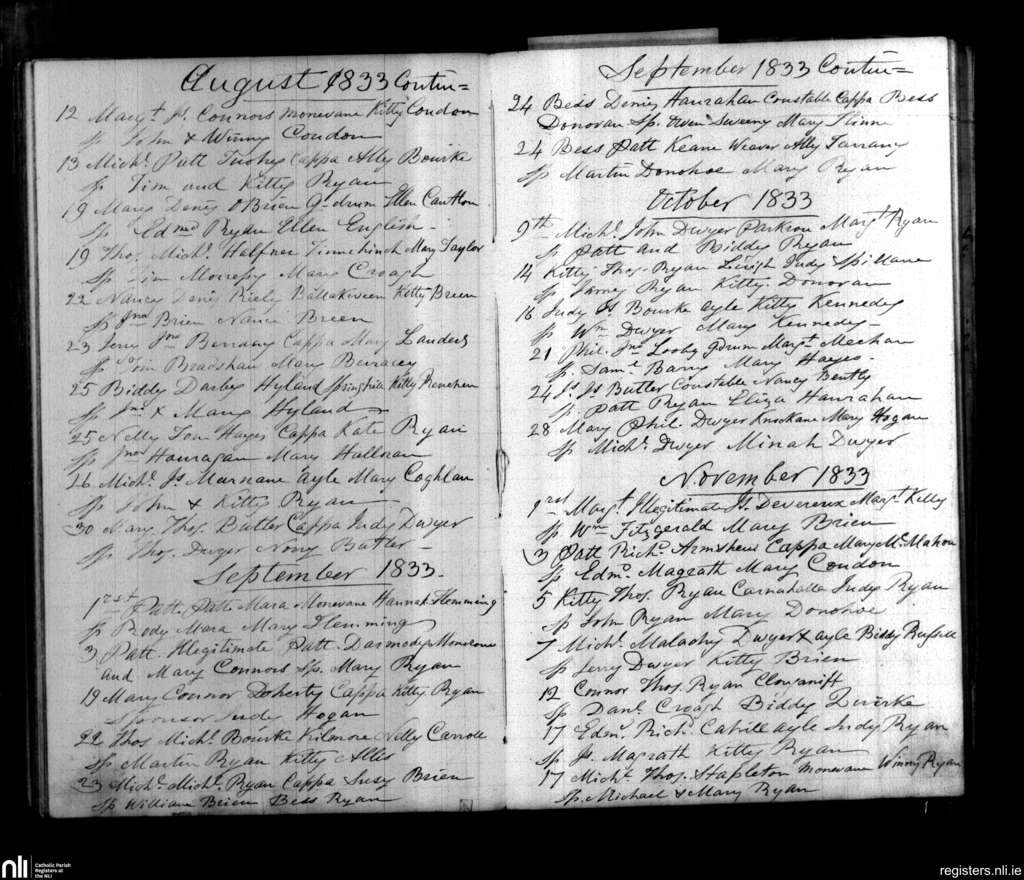 August 1833 Contin=
12 Marg.t Js. Connors monevane Kitty Condon
Sp John & Winny Condon
13 Mich.l Patt Tuohy Cappa Ally Bourke
Sp Tim and Kitty Ryan
19 Mary Denis OBrien G-drum Ellen
Sp Edm.d Ryan Ellen English
19 Thos. Mich.l Halfner Mary Taylor
Sp Tim Mary Creagh
22 Nancy Denis Kiely Kitty Breen
Sp Jno Brien Nance Breen
23 Jerry Jno Cappa Mary Landers
Sp Bradshaw Mary
25 Biddy Darby Hyland Kitty
Sp Jno & Mary Hyland
25 Nelly Tom Hayes Cappa Kate Ryan
Sp Jno Hanragan Mary Hallinan
26 Mich.l Js Marnane ayle Mary Coghlan
Sp John & Kitty Ryan
30 Mary Thos. Butler Cappa Judy Dwyer
Sp Thos. Dwyer Nony Butler
September 1833.
1rst Patt Patt Mara Monevane Hannah Flemming
Sp Rody Mara Mary Flemming
3 Patt. Illegitimate Patt. Darmody Monevane
and Mary Connors Sp. Mary Ryan
19 Mary Connor Doherty Cappa Kitty Ryan
Sponsor Judy Hogan
22 Thos Mich.l Bourke Kilmore Nelly Carroll
Sp Martin Ryan Kitty Alles
23 Mich.l Mich.l Ryan Cappa Susy Brien
Sp William Brien Bess Ryan
September 1833 Contin=
24 Bess Denis Hanrahan Constable Cappa Bess
Donovan Sp. Owen Sweeny Mary
24 Bess Patt Keane Weaver Ally
Sp Martin Donohoe Mary Ryan
October 1833
9th Mich.l John Dwyer Parkrow Marg.t Ryan
Sp Patt and Biddy Ryan
14 Kitty Thos. Ryan Judy Spillane
Sp Ryan Kitty Donovan
16 Judy Js Bourke ayle Kitty Kennedy
Sp Wm Dwyer Mary Kennedy
21 Phil. Jno Looby Gdrum Marg.t Meehan
Sp. Sam.l Barry Mary Hayes.
24 Js. Js Butler Constable Nancy Bently
Sp Patt Ryan Eliza Hanrahan
28 Mary Phil. Dwyer Knockane Mary Hogan
Sp Mich.l Dwyer Minah Dwyer
November 1833
1rst Marg.t Illegitimate Js. Devereux Marg.t Kelly
Sp Wm Fitzgerald Mary Brien
3 Patt Rich.d Armshew Cappa Mary McMahon
Sp Edm.d Magrath Mary Condon
5 Kitty Thos. Ryan Carnahalla Judy Ryan
Sp John Ryan Mary Donohoe
7 Mich.l Malachy Dwyer ayle Biddy
Sp Jerry Dwyer Kitty Brien
12 Connor Thos. Ryan
Sp Dan.l Creagh Biddy Quirke
17 Edm.d Rich.d Cahill ayle Judy Ryan
Sp Js. Magrath Kitty Ryan
17 Mich.l Thos. Stapleton monevane Winny Ryan
Sp. Michael & Mary Ryan
nli
Catholic Parish
Registers at
the NLI
registers.nli.ie